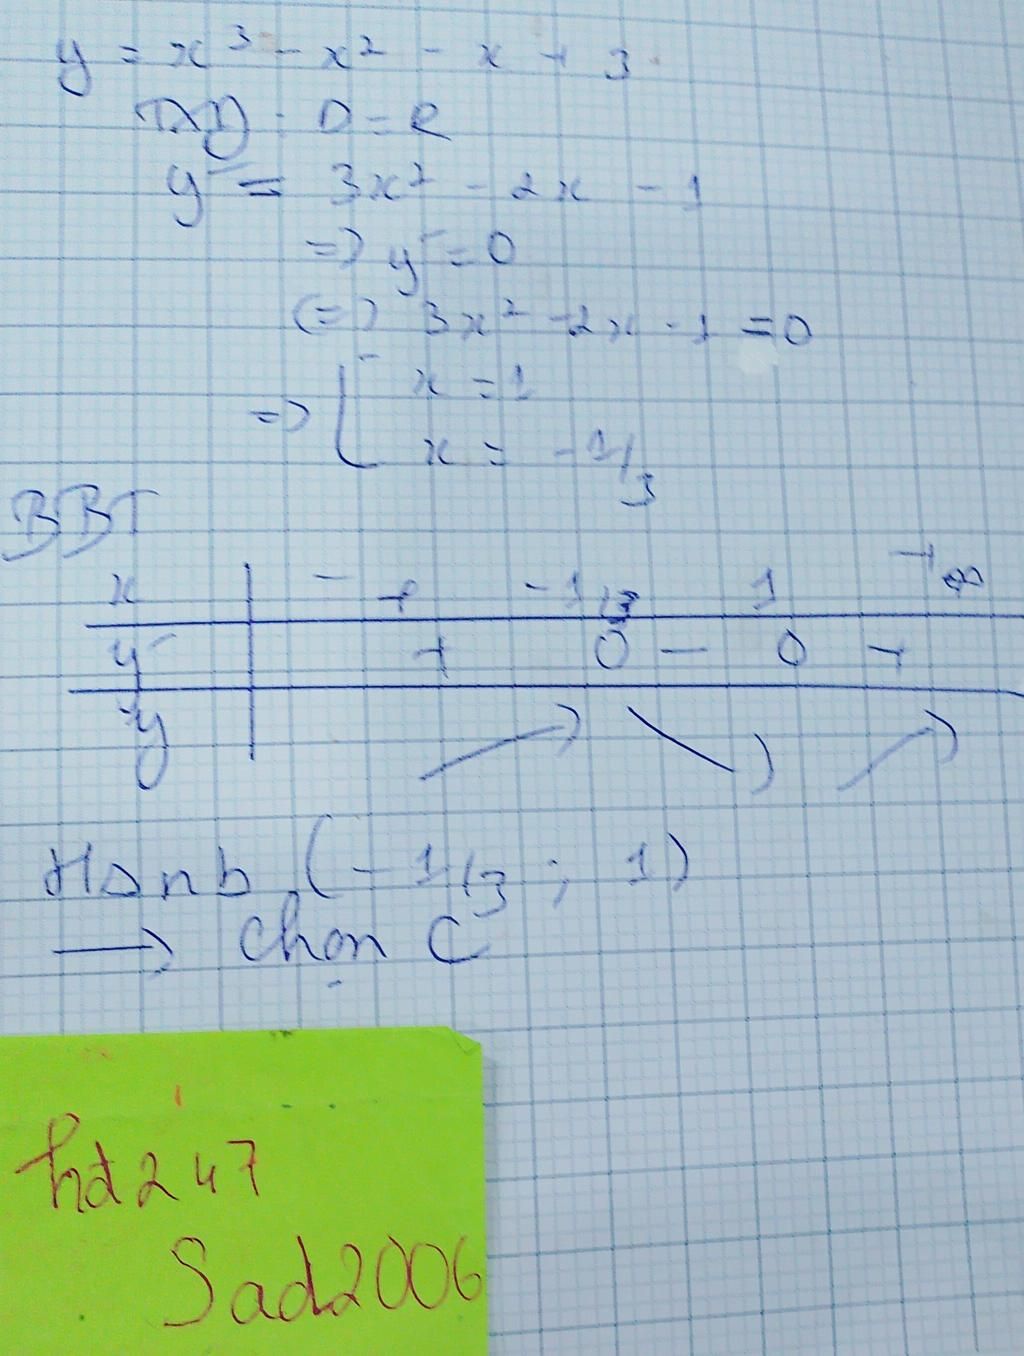 y = x³ - x² - x + 3
TXĐ : D = R
y' = 3x² - 2x - 1
=> y' = 0
(=) 3x² - 2x - 1 = 0
=> [ x = 1
x = -1/3
BBT
x - -1/3 1 +∞
y' + 0 - 0 +
y
HSnb (-1/3 ; 1)
→ Chọn C
hd247
Sad2006